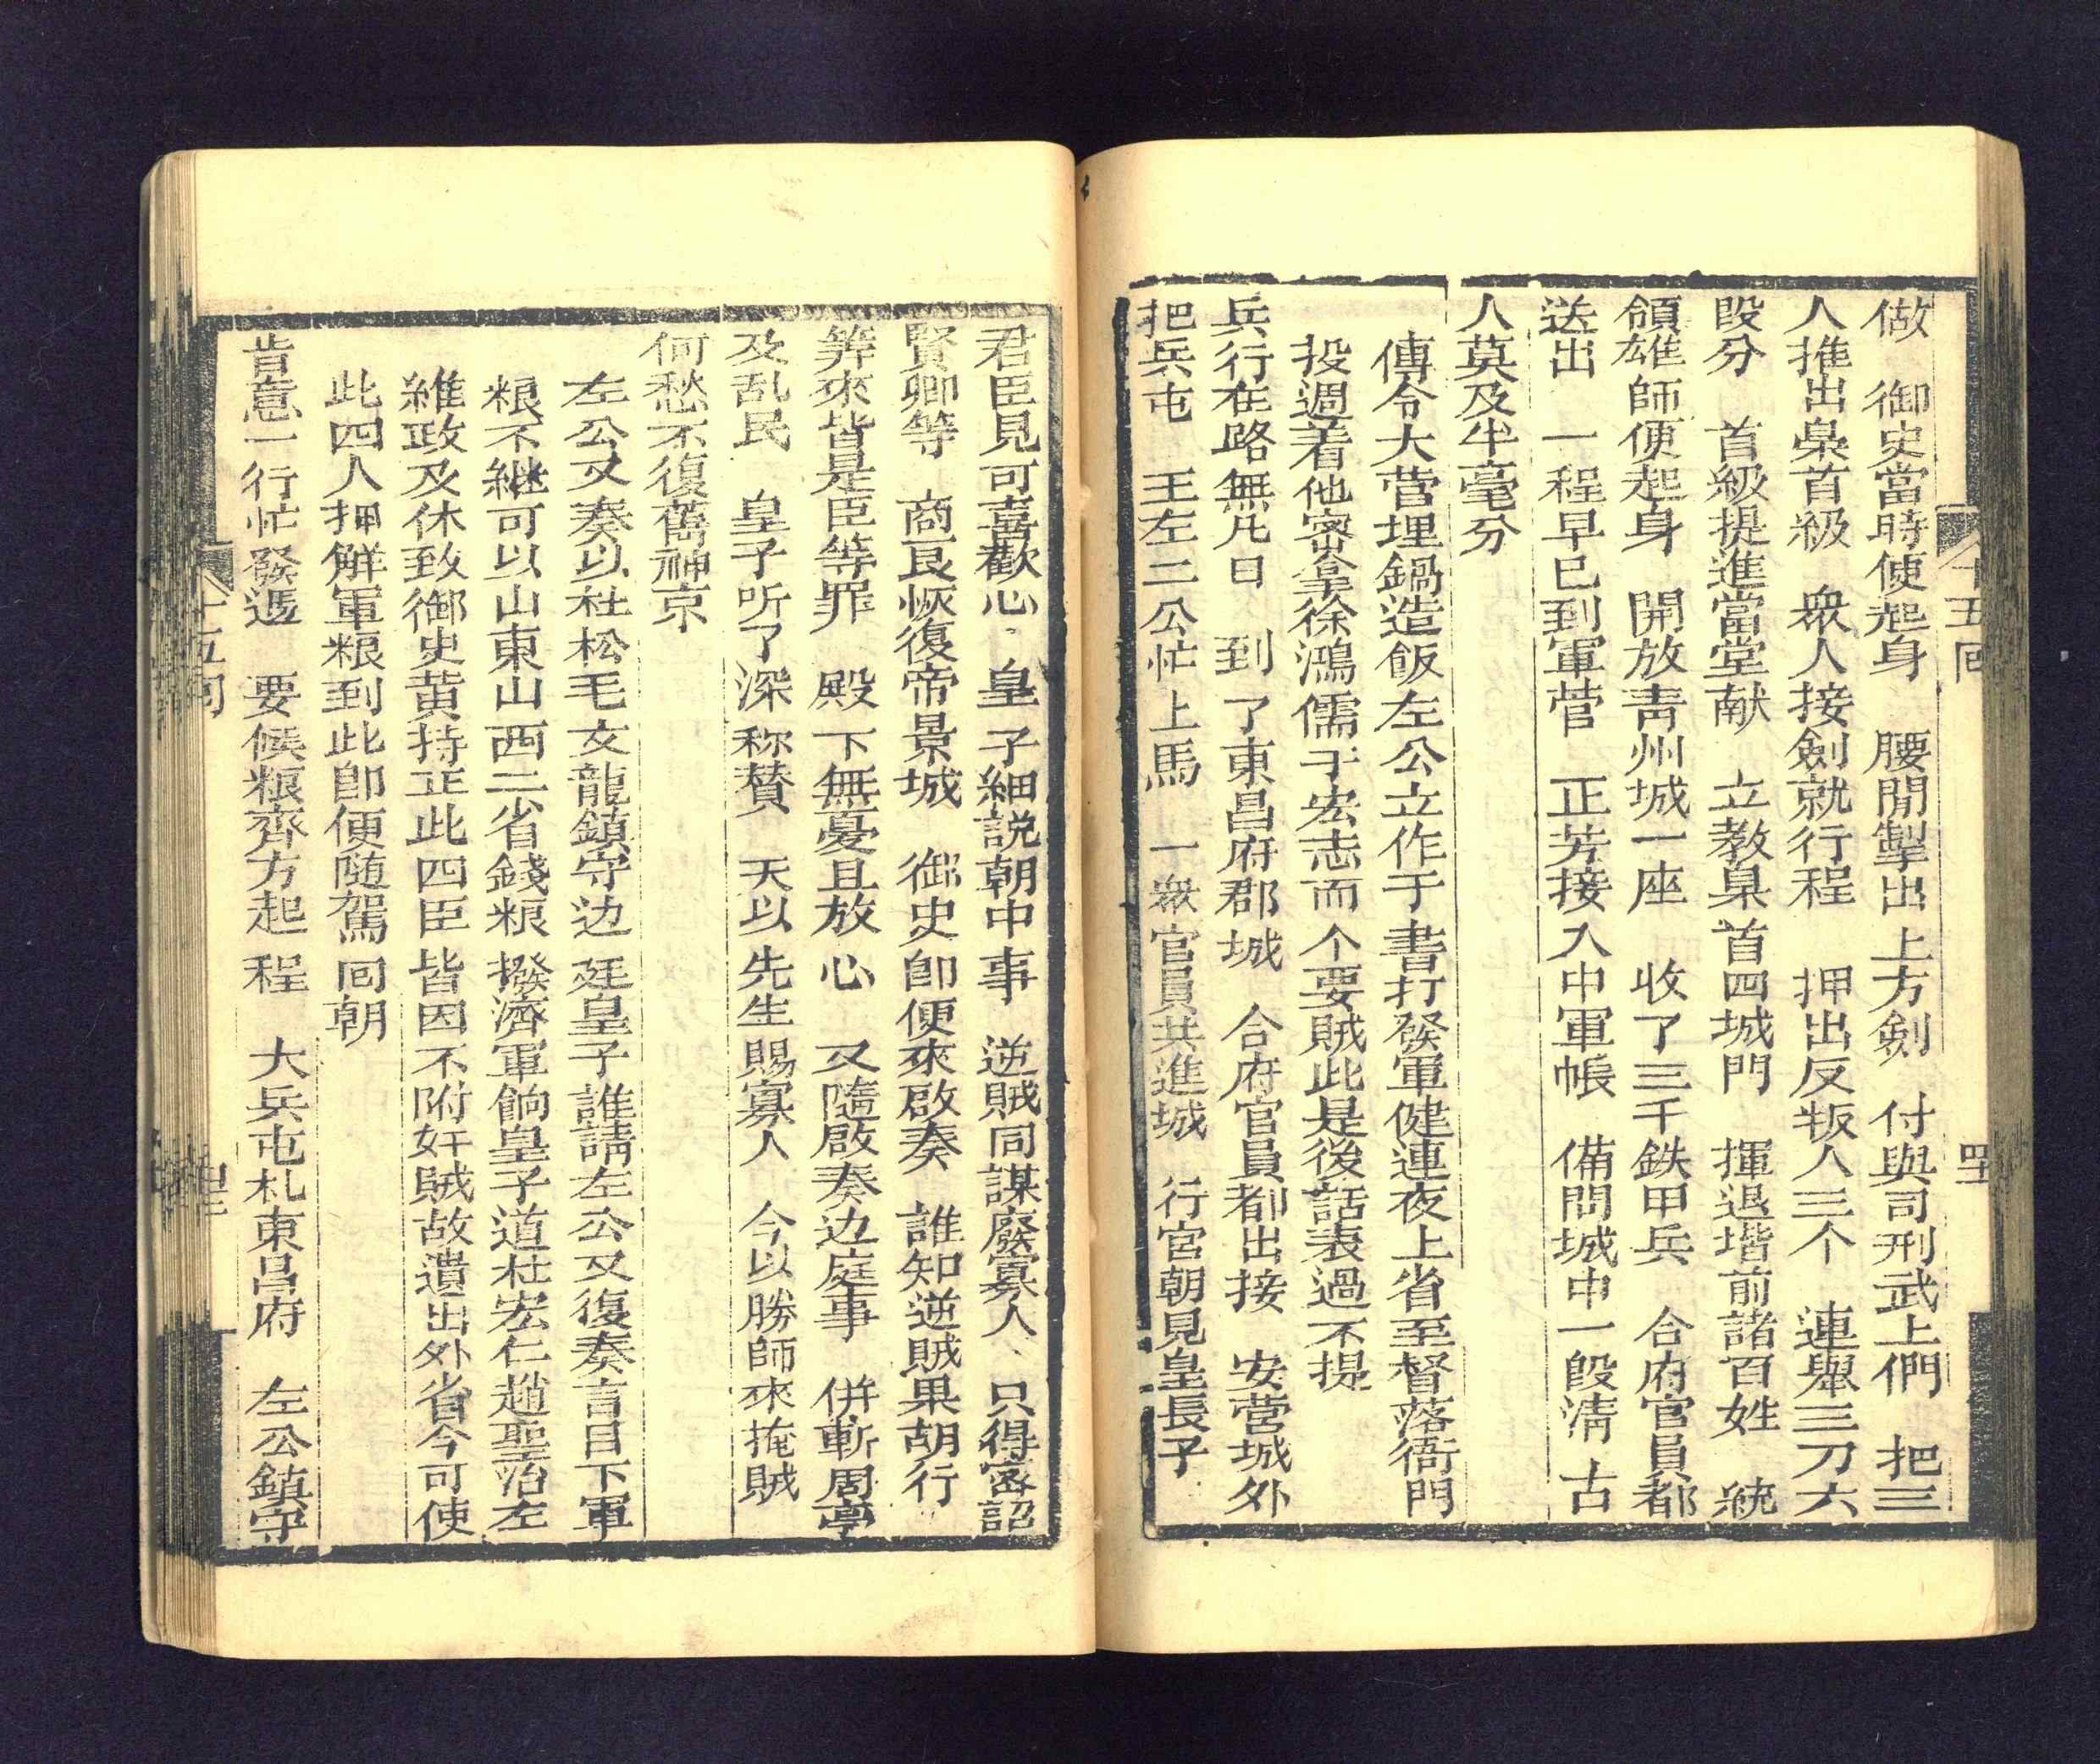 做　御史當時使起身　腰間掣出上方劍　付與司刑武上們　把三
人推出梟首級　衆人接劍就行程　押出反叛人三个　連舉三刀六
段分　首級提進當堂献　立教梟首四城門　揮退堦前諸百姓　統
領雄師便起身　開放青州城一座　收了三千鉄甲兵　合府官員都
送出　一程早已到軍营　正芳接入中軍帳　備問城中一段清　古
人莫及半毫分
傳令大营埋鍋造飯左公立作于書打發軍健連夜上省至督落衙門
投週着他密拿徐鴻儒于宏志而个要賊此是後話表過不提
兵行在路無凡日　到了東昌府郡城　合府官員都出接　安营城外
把兵屯　王左二公忙上馬　一衆官員共進城　行宮朝見皇長子
十五囘
君臣見可喜歡心　皇子細説朝中事　逆賊同謀廢寡人　只得密詔
賢卿等　商良恢復帝景城　御史卽便來啟奏　誰知逆賊果胡行
筭來皆是臣等罪　殿下無憂且放心　又隨啟奏边庭事　併斬周亭
及乱民　皇子听了深称賛　天以先生賜寡人　今以勝師來掩賊
何愁不復舊神京
左公又奏以杜松毛文龍鎮守边廷皇子誰請左公又復奏言目下軍
粮不継可以山東山西二省錢粮撥濟軍餉皇子道杜宏仁趙聖治左
維政及休致御史黄持正此四臣皆因不附奸賊故遣出外省今可使
此四人押解軍粮到此卽便随駕囘朝
肯意一行忙發遞　要候粮齊方起程　大兵屯札東昌府　左公鎮守
十五囘